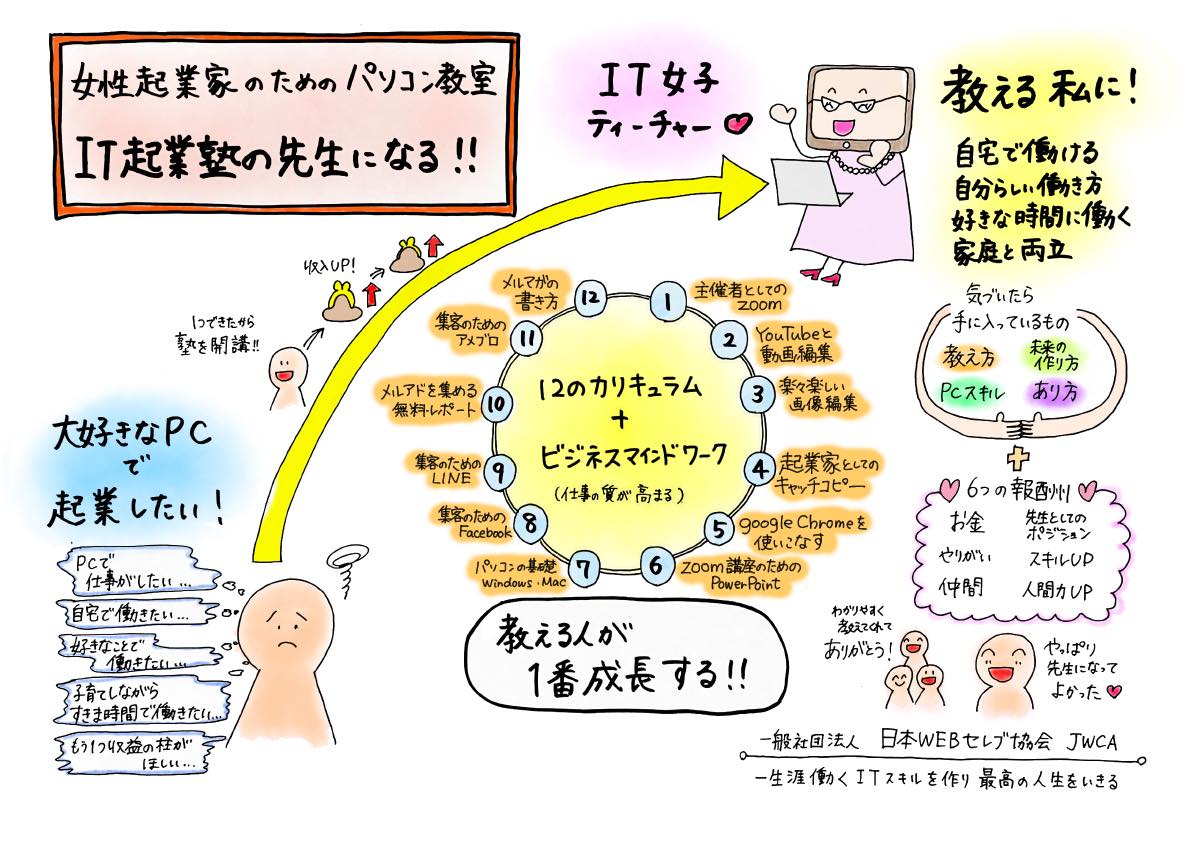 女性起業家のためのパソコン教室
IT起業塾の先生になる!!
IT女子
ティーチャー♥
教える私に!
自宅で働ける
自分らしい働き方
好きな時間に働く
家庭と両立
収入UP!
1つできたから
塾を開講!!
大好きなPC
で
起業したい!
PCで
仕事がしたい…
自宅で働きたい…
好きなことで
働きたい…
子育てしながら
すきま時間で働きたい…
もう1つ収益の柱が
ほしい…
12のカリキュラム
+
ビジネスマインドワーク
(仕事の質が高まる)
1
主催者としての
zoom
2
YouTubeと
動画編集
3
楽々楽しい
画像編集
4
起業家としての
キャッチコピー
5
google Chromeを
使いこなす
6
zoom講座のための
PowerPoint
7
パソコンの基礎
Windows・Mac
8
集客のための
Facebook
9
集客のための
LINE
10
メルアドを集める
無料レポート
11
集客のための
アメブロ
12
メルマガの
書き方
教える人が
1番成長する!!
気づいたら
手に入っているもの
教え方
未来の
作り方
PCスキル
あり方
+
6つの報酬
お金
先生としての
ポジション
やりがい
スキルUP
仲間
人間力UP
わかりやすく
教えてくれて
ありがとう!
やっぱり
先生になって
よかった♥
一般社団法人 日本WEBセレブ協会 JWCA
一生涯働くITスキルを作り 最高の人生をいきる